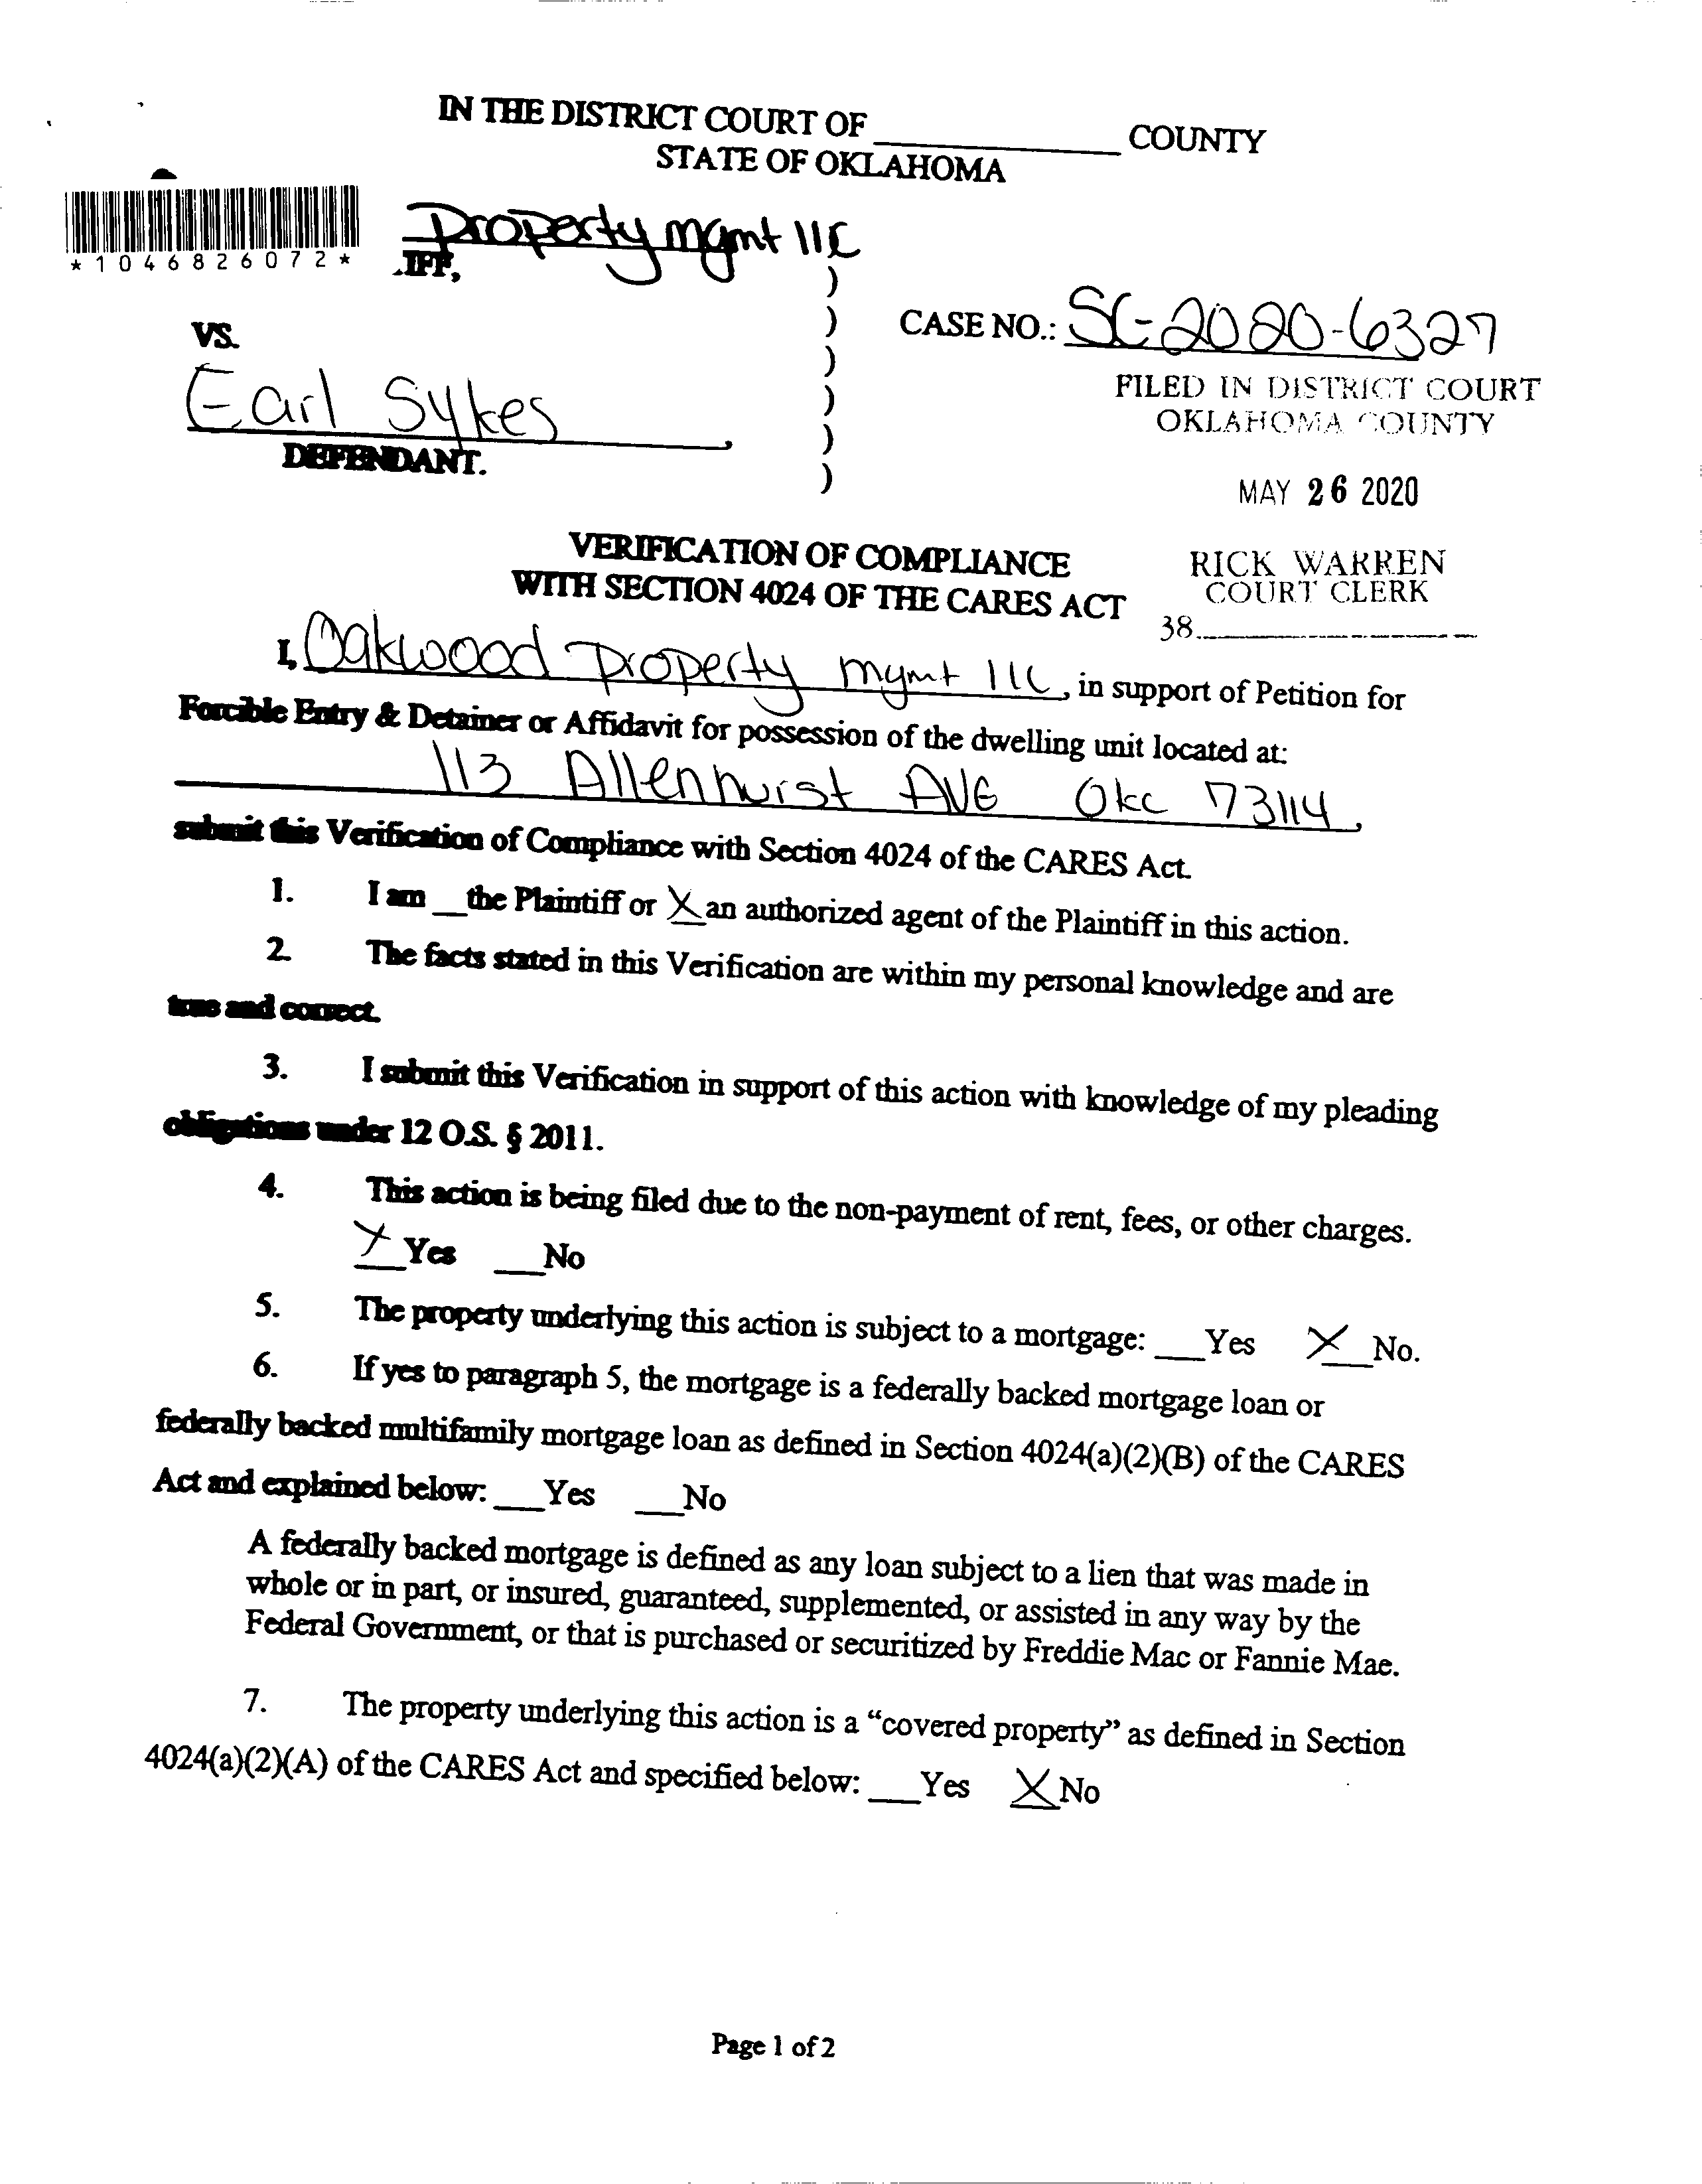 IN THE DISTRICT COURT OF ______________ COUNTY
STATE OF OKLAHOMA
*1046826072*
Property mgmt llc
.IFF,
)
VS.
)
CASE NO.: SC-2020-6327
)
FILED IN DISTRICT COURT
OKLAHOMA COUNTY
Earl Sykes,
)
)
DEFENDANT.
)
MAY 26 2020
VERIFICATION OF COMPLIANCE
WITH SECTION 4024 OF THE CARES ACT
RICK WARREN
COURT CLERK
38.______________
I, Oakwood property mgmt llc, in support of Petition for
Forcible Entry & Detainer or Affidavit for possession of the dwelling unit located at:
113 Allenhurst AVE Okc 73114,
submit this Verification of Compliance with Section 4024 of the CARES Act.
1. I am __the Plaintiff or X an authorized agent of the Plaintiff in this action.
2. The facts stated in this Verification are within my personal knowledge and are
true and correct.
3. I submit this Verification in support of this action with knowledge of my pleading
obligations under 12 O.S. § 2011.
4. This action is being filed due to the non-payment of rent, fees, or other charges.
X Yes ___No
5. The property underlying this action is subject to a mortgage: ___Yes X No.
6. If yes to paragraph 5, the mortgage is a federally backed mortgage loan or
federally backed multifamily mortgage loan as defined in Section 4024(a)(2)(B) of the CARES
Act and explained below: ___Yes ___No
A federally backed mortgage is defined as any loan subject to a lien that was made in
whole or in part, or insured, guaranteed, supplemented, or assisted in any way by the
Federal Government, or that is purchased or securitized by Freddie Mac or Fannie Mae.
7. The property underlying this action is a “covered property” as defined in Section
4024(a)(2)(A) of the CARES Act and specified below: ___Yes X No
Page 1 of 2